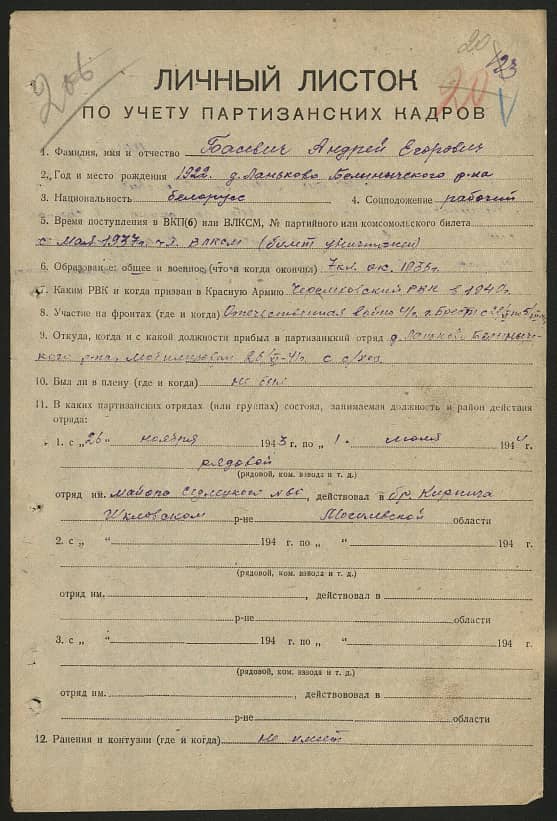 206
20
23
20
ЛИЧНЫЙ ЛИСТОК
ПО УЧЕТУ ПАРТИЗАНСКИХ КАДРОВ
1. Фамилия, имя и отчество Басевич Андрей Егорович
2. Год и место рождения 1922 д. Ланьково Белынычского р-на
3. Национальность белорусс 4. Соцположение рабочий
5. Время поступления в ВКП(б) или ВЛКСМ, № партийного или комсомольского билета
с мая 1937г. чл. ВЛКСМ (билет уничтожен)
6. Образование: общее и военное (что и когда окончил) 7кл. ок. 1935г.
7. Каким РВК и когда призван в Красную Армию РВК в 1940г.
8. Участие на фронтах (где и когда) Отечественная война 41г.
9. Откуда, когда и с какой должности прибыл в партизанский отряд д. Ланьково Белыныч-
кого р-на, 26/XI-41г. с
10. Был ли в плену (где и когда) не был
11. В каких партизанских отрядах (или группах) состоял, занимаемая должность и район действия
отряда:
1. с „26“ ноября 1943 г. по „1“ июля 1944 г.
рядовой
(рядовой, ком. взвода и т. д.)
отряд им. майора Седлецкого №66, действовал в бр. Кирпича
Шкловском р-не Могилевской области
2. с „ “ 194 г. по „ “ 194 г.
(рядовой, ком. взвода и т. д.)
отряд им. , действовал в
р-не области
3. с „ “ 194 г. по „ “ 194 г.
(рядовой, ком. взвода и т. д.)
отряд им. , действововал в
р-не области
12. Ранения и контузии (где и когда) не имеет